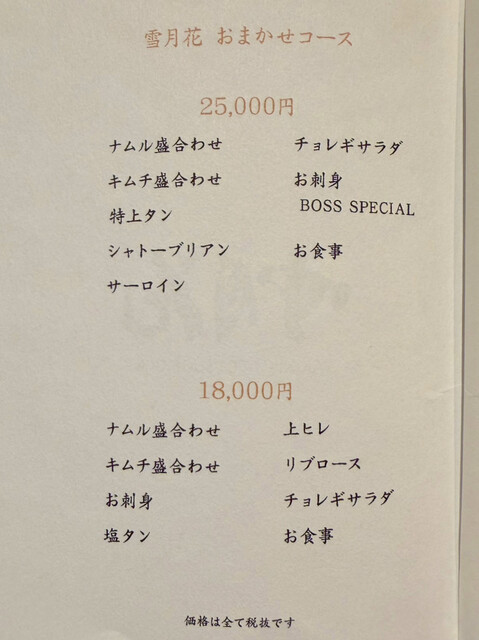 雪月花 おまかせコース
25,000円
ナムル盛合わせ
キムチ盛合わせ
特上タン
シャトーブリアン
サーロイン
チョレギサラダ
お刺身
BOSS SPECIAL
お食事
18,000円
ナムル盛合わせ
キムチ盛合わせ
お刺身
塩タン
上ヒレ
リブロース
チョレギサラダ
お食事
価格は全て税抜です